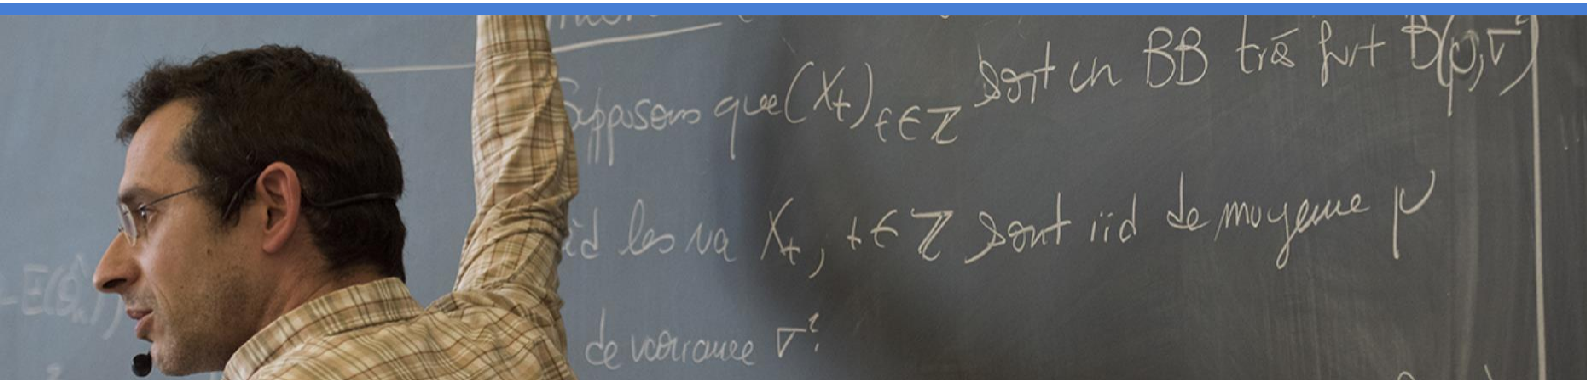 Supposons que (X_t)_{t∈Z} sont un BB très fort B(μ,σ²)
id les va X_t, t∈Z sont iid de moyenne μ
de variance σ².
-E(